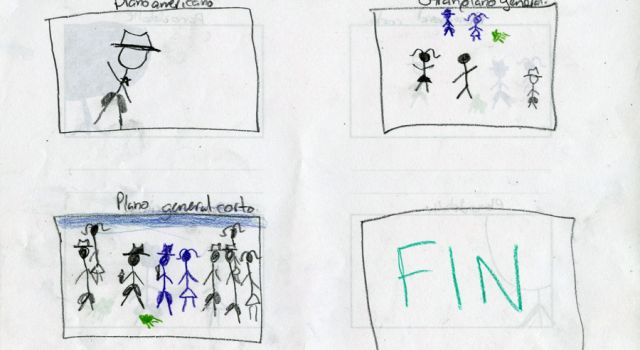 Plano americano
Gran plano general.
Plano general corto
FIN